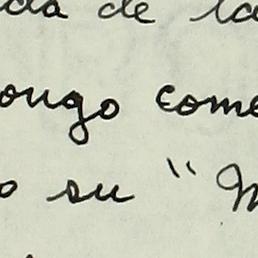 da de la
ongo come
o su "M